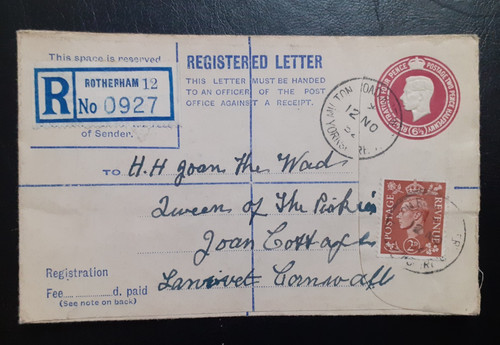 This space is reserved
REGISTERED LETTER
THIS LETTER MUST BE HANDED
TO AN OFFICER OF THE POST
OFFICE AGAINST A RECEIPT.
R
ROTHERHAM 12
No 0927
of Sender.
POSTAGE
12 NO
TO H.H Joan the Wad
Queen of The Piskies
Joan Cottage
Lanivet Cornwall
POSTAGE
REVENUE
Registration
Fee............d. paid
(See note on back)